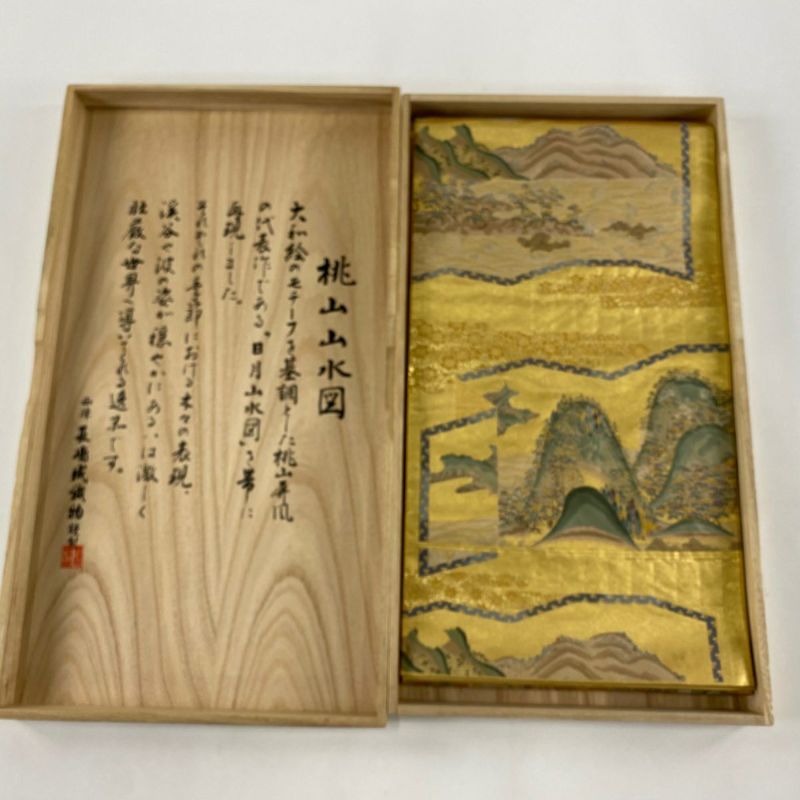 桃山山水図
大和絵のモチーフを基調とした桃山屏風
の代表作である。"日月山水図"を帯に
再現しました。
それぞれの季節における木々の表現、
渓谷や波の姿が穏やかにある、は激しく
荘厳な世界へ導いてくれる逸品です。
織物謹製